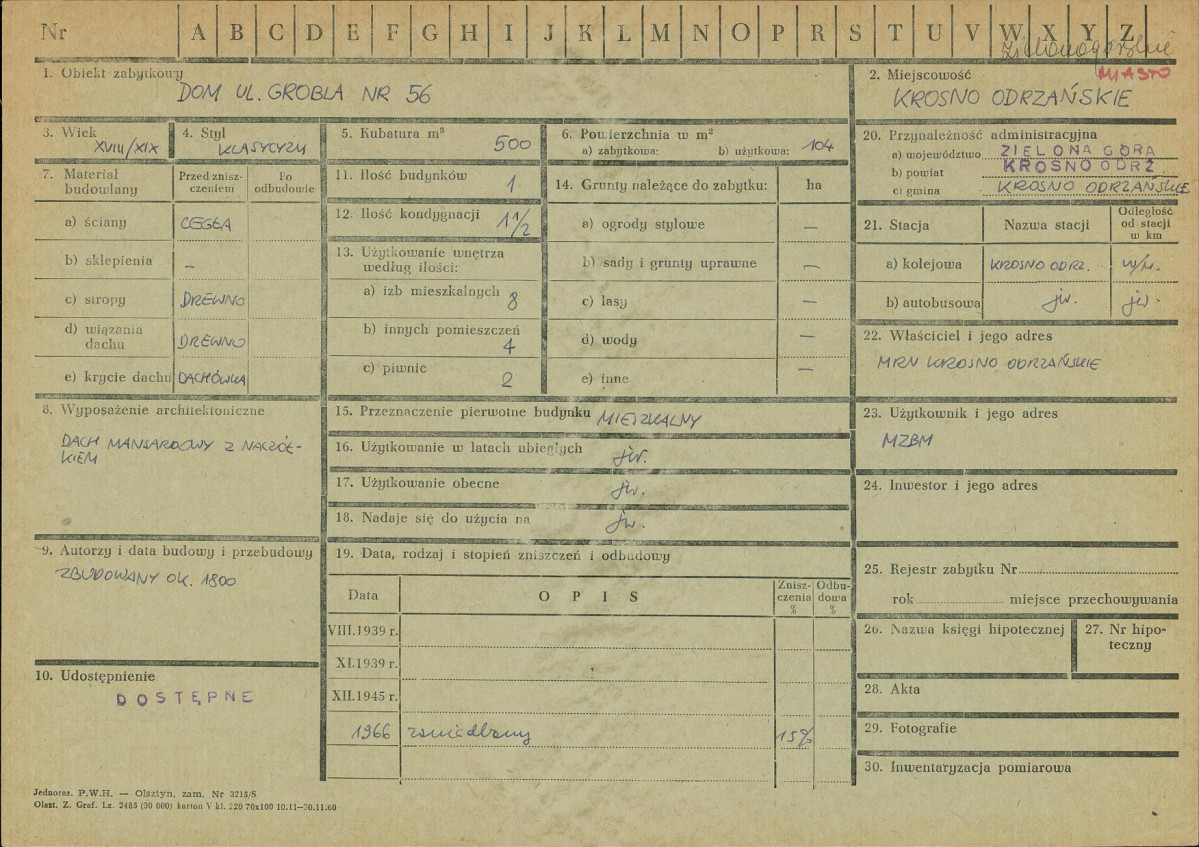 Nr A B C D E F G H I J K L M N O P R S T U V W X Y Z
Zielonogórskie
1. Obiekt zabytkowy
DOM UL. GROBLA NR 56
2. Miejscowość
MIASTO
KROSNO ODRZAŃSKIE
3. Wiek
XVIII/XIX
4. Styl
KLASYCYZM
5. Kubatura m³
500
6. Powierzchnia w m²
a) zabytkowa: b) użytkowa: 104
20. Przynależność administracyjna
a) województwo ZIELONA GÓRA
b) powiat KROSNO ODRZ.
c) gmina KROSNO ODRZAŃSKIE
7. Materiał budowlany
Przed znisz-
czeniem
Po
odbudowie
a) ściany CEGŁA
b) sklepienia –
c) stropy DREWNO
d) wiązania
dachu DREWNO
e) krycie dachu DACHÓWKA
11. Ilość budynków 1
12. Ilość kondygnacji 1 1/2
13. Użytkowanie wnętrza
według ilości:
a) izb mieszkalnych 8
b) innych pomieszczeń
4
c) piwnic 2
14. Grunty należące do zabytku: ha
a) ogrody stylowe –
b) sady i grunty uprawne –
c) lasy –
d) wody –
e) inne –
21. Stacja Nazwa stacji
Odległość
od stacji
w km
a) kolejowa KROSNO ODRZ. w/m.
b) autobusowa jw. jw.
22. Właściciel i jego adres
MRN KROSNO ODRZAŃSKIE
8. Wyposażenie architektoniczne
DACH MANSARDOWY Z NACZÓŁ-
KIEM
15. Przeznaczenie pierwotne budynku MIESZKALNY
16. Użytkowanie w latach ubiegłych jw.
17. Użytkowanie obecne jw.
18. Nadaje się do użycia na jw.
23. Użytkownik i jego adres
MZBM
24. Inwestor i jego adres
9. Autorzy i data budowy i przebudowy
ZBUDOWANY OK. 1800
19. Data, rodzaj i stopień zniszczeń i odbudowy
Data OPIS
Znisz-
czenia
%
Odbu-
dowa
%
VIII.1939 r.
XI.1939 r.
XII.1945 r.
1966 zaniedbany 15%
25. Rejestr zabytku Nr
rok miejsce przechowywania
26. Nazwa księgi hipotecznej
27. Nr hipo-
teczny
10. Udostępnienie
DOSTĘPNE
28. Akta
29. Fotografie
30. Inwentaryzacja pomiarowa
Jednoraz. P.W.H. — Olsztyn, zam. Nr 3215/S
Olszt. Z. Graf. Lz. 2485 (30 000) karton V kl. 220 70x100 10.11—30.11.60